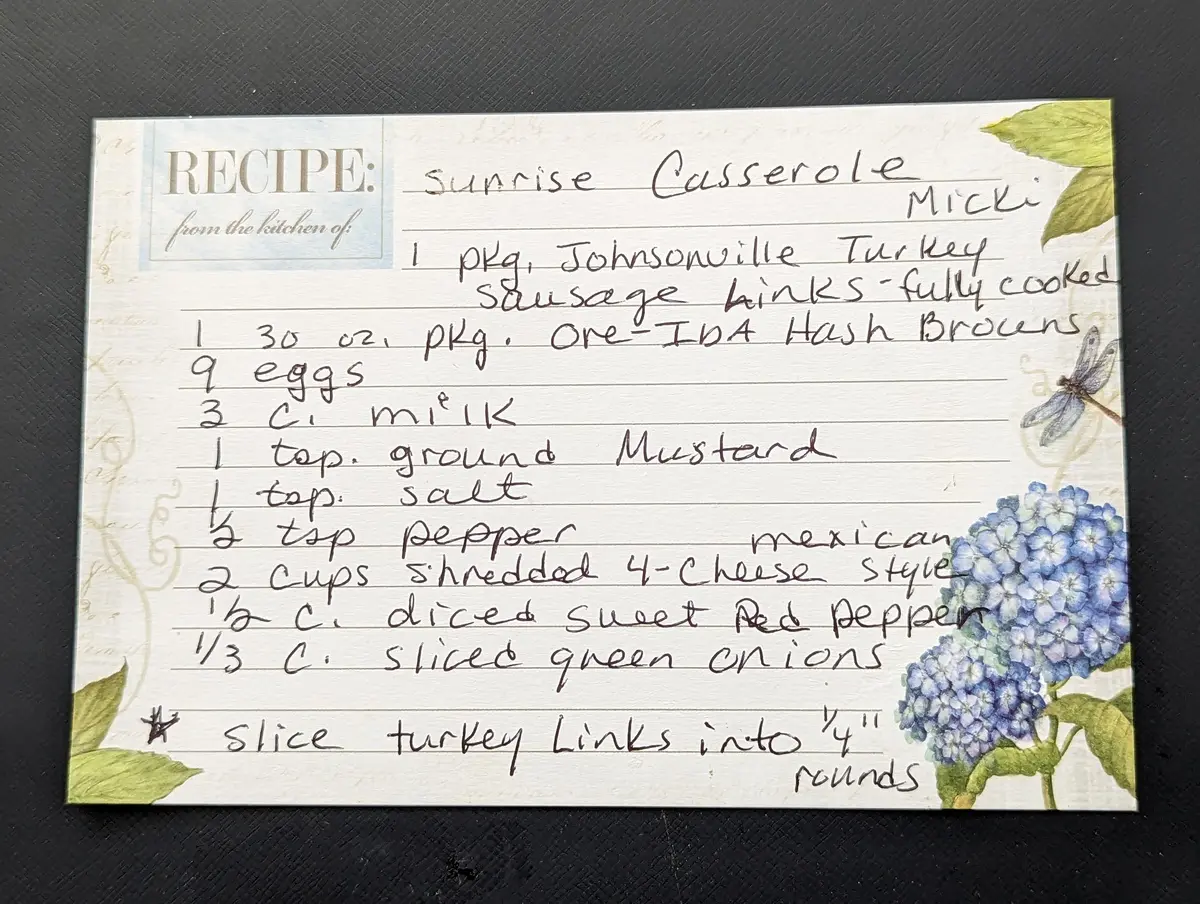 RECIPE:
from the kitchen of:
Sunrise Casserole
Micki
1 pkg. Johnsonville Turkey
Sausage Links - fully cooked
1 30 oz. pkg. Ore-IDA Hash Browns
9 eggs
3 c. milk
1 tsp. ground Mustard
1 tsp. salt
1/2 tsp pepper
mexican
2 cups shredded 4-Cheese style
1/2 C. diced sweet Red pepper
1/3 C. sliced green onions
★ slice turkey Links into 1/4"
rounds